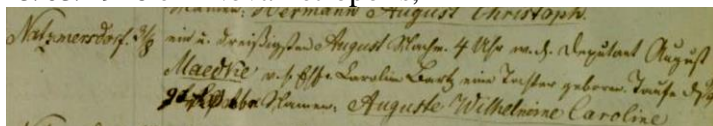 Namen: Hermann August Christoph.
Natzmersdorf. 31/8 ein u. dreißigsten August Nachm. 4 Uhr w. d. Deputant August
Maedtke v. s. Ehefr. Carolin Bartz eine Tochter geboren. Taufe
Namen: Auguste Wilhelmine Caroline